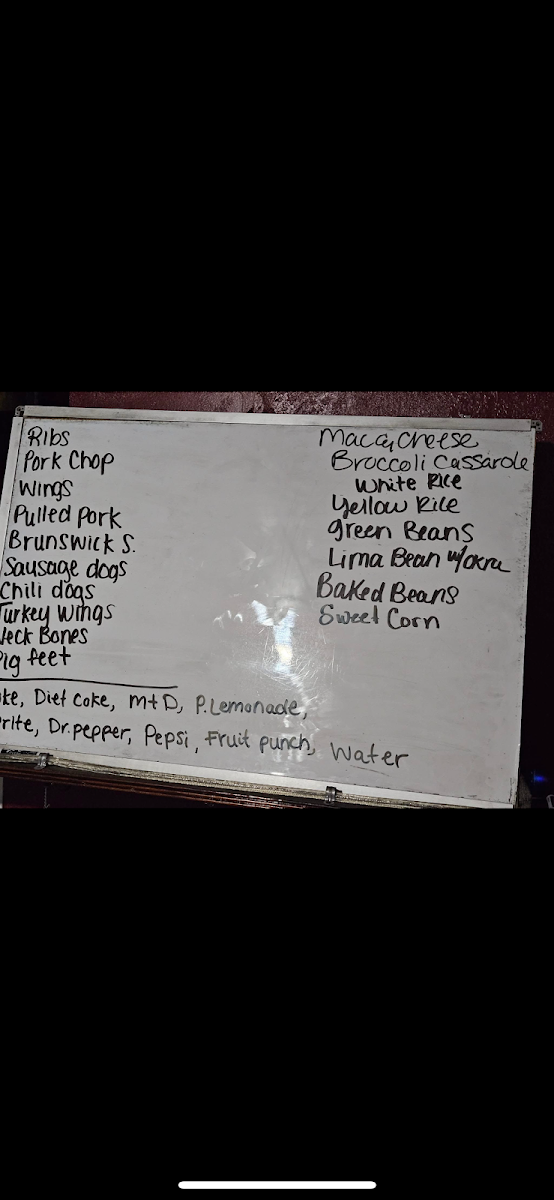 Ribs
Pork Chop
Wings
Pulled Pork
Brunswick S.
Sausage dogs
Chili dogs
Turkey Wings
Neck Bones
Pig feet
Mac & Cheese
Broccoli Cassarole
White Rice
Yellow Rice
green Beans
Lima Bean w/okra
Baked Beans
Sweet Corn
ke, Diet Coke, m+D, P.Lemonade,
rite, Dr.pepper, Pepsi, Fruit punch, Water